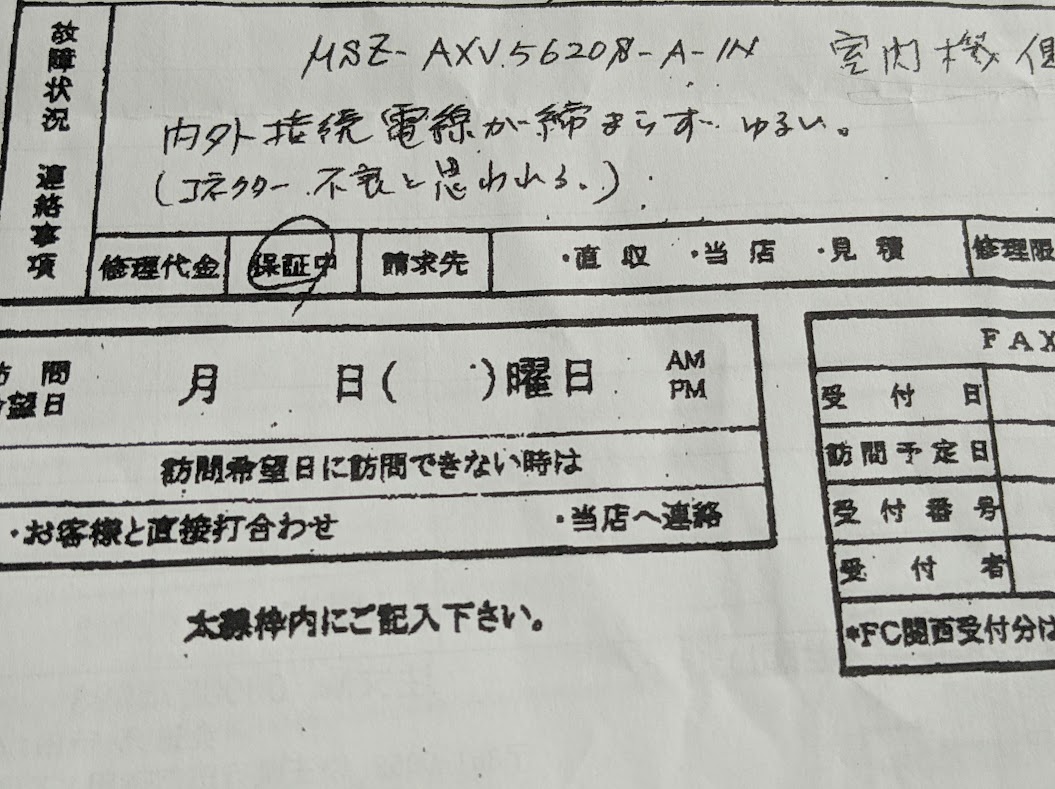 故障状況 連絡事項
MSZ-AXV.5620S-A-IN 室内機
内外接続電線が締まらず ゆるい。
(コネクター 不良と思われる。)
修理代金 保証中 請求先 ・直収 ・当店 ・見積 修理限
訪問希望日 月 日( )曜日 AM PM
訪問希望日に訪問できない時は
・お客様と直接打合わせ ・当店へ連絡
太線枠内にご記入下さい。
FAX
受付日
訪問予定日
受付番号
受付者
*FC関西受付分は